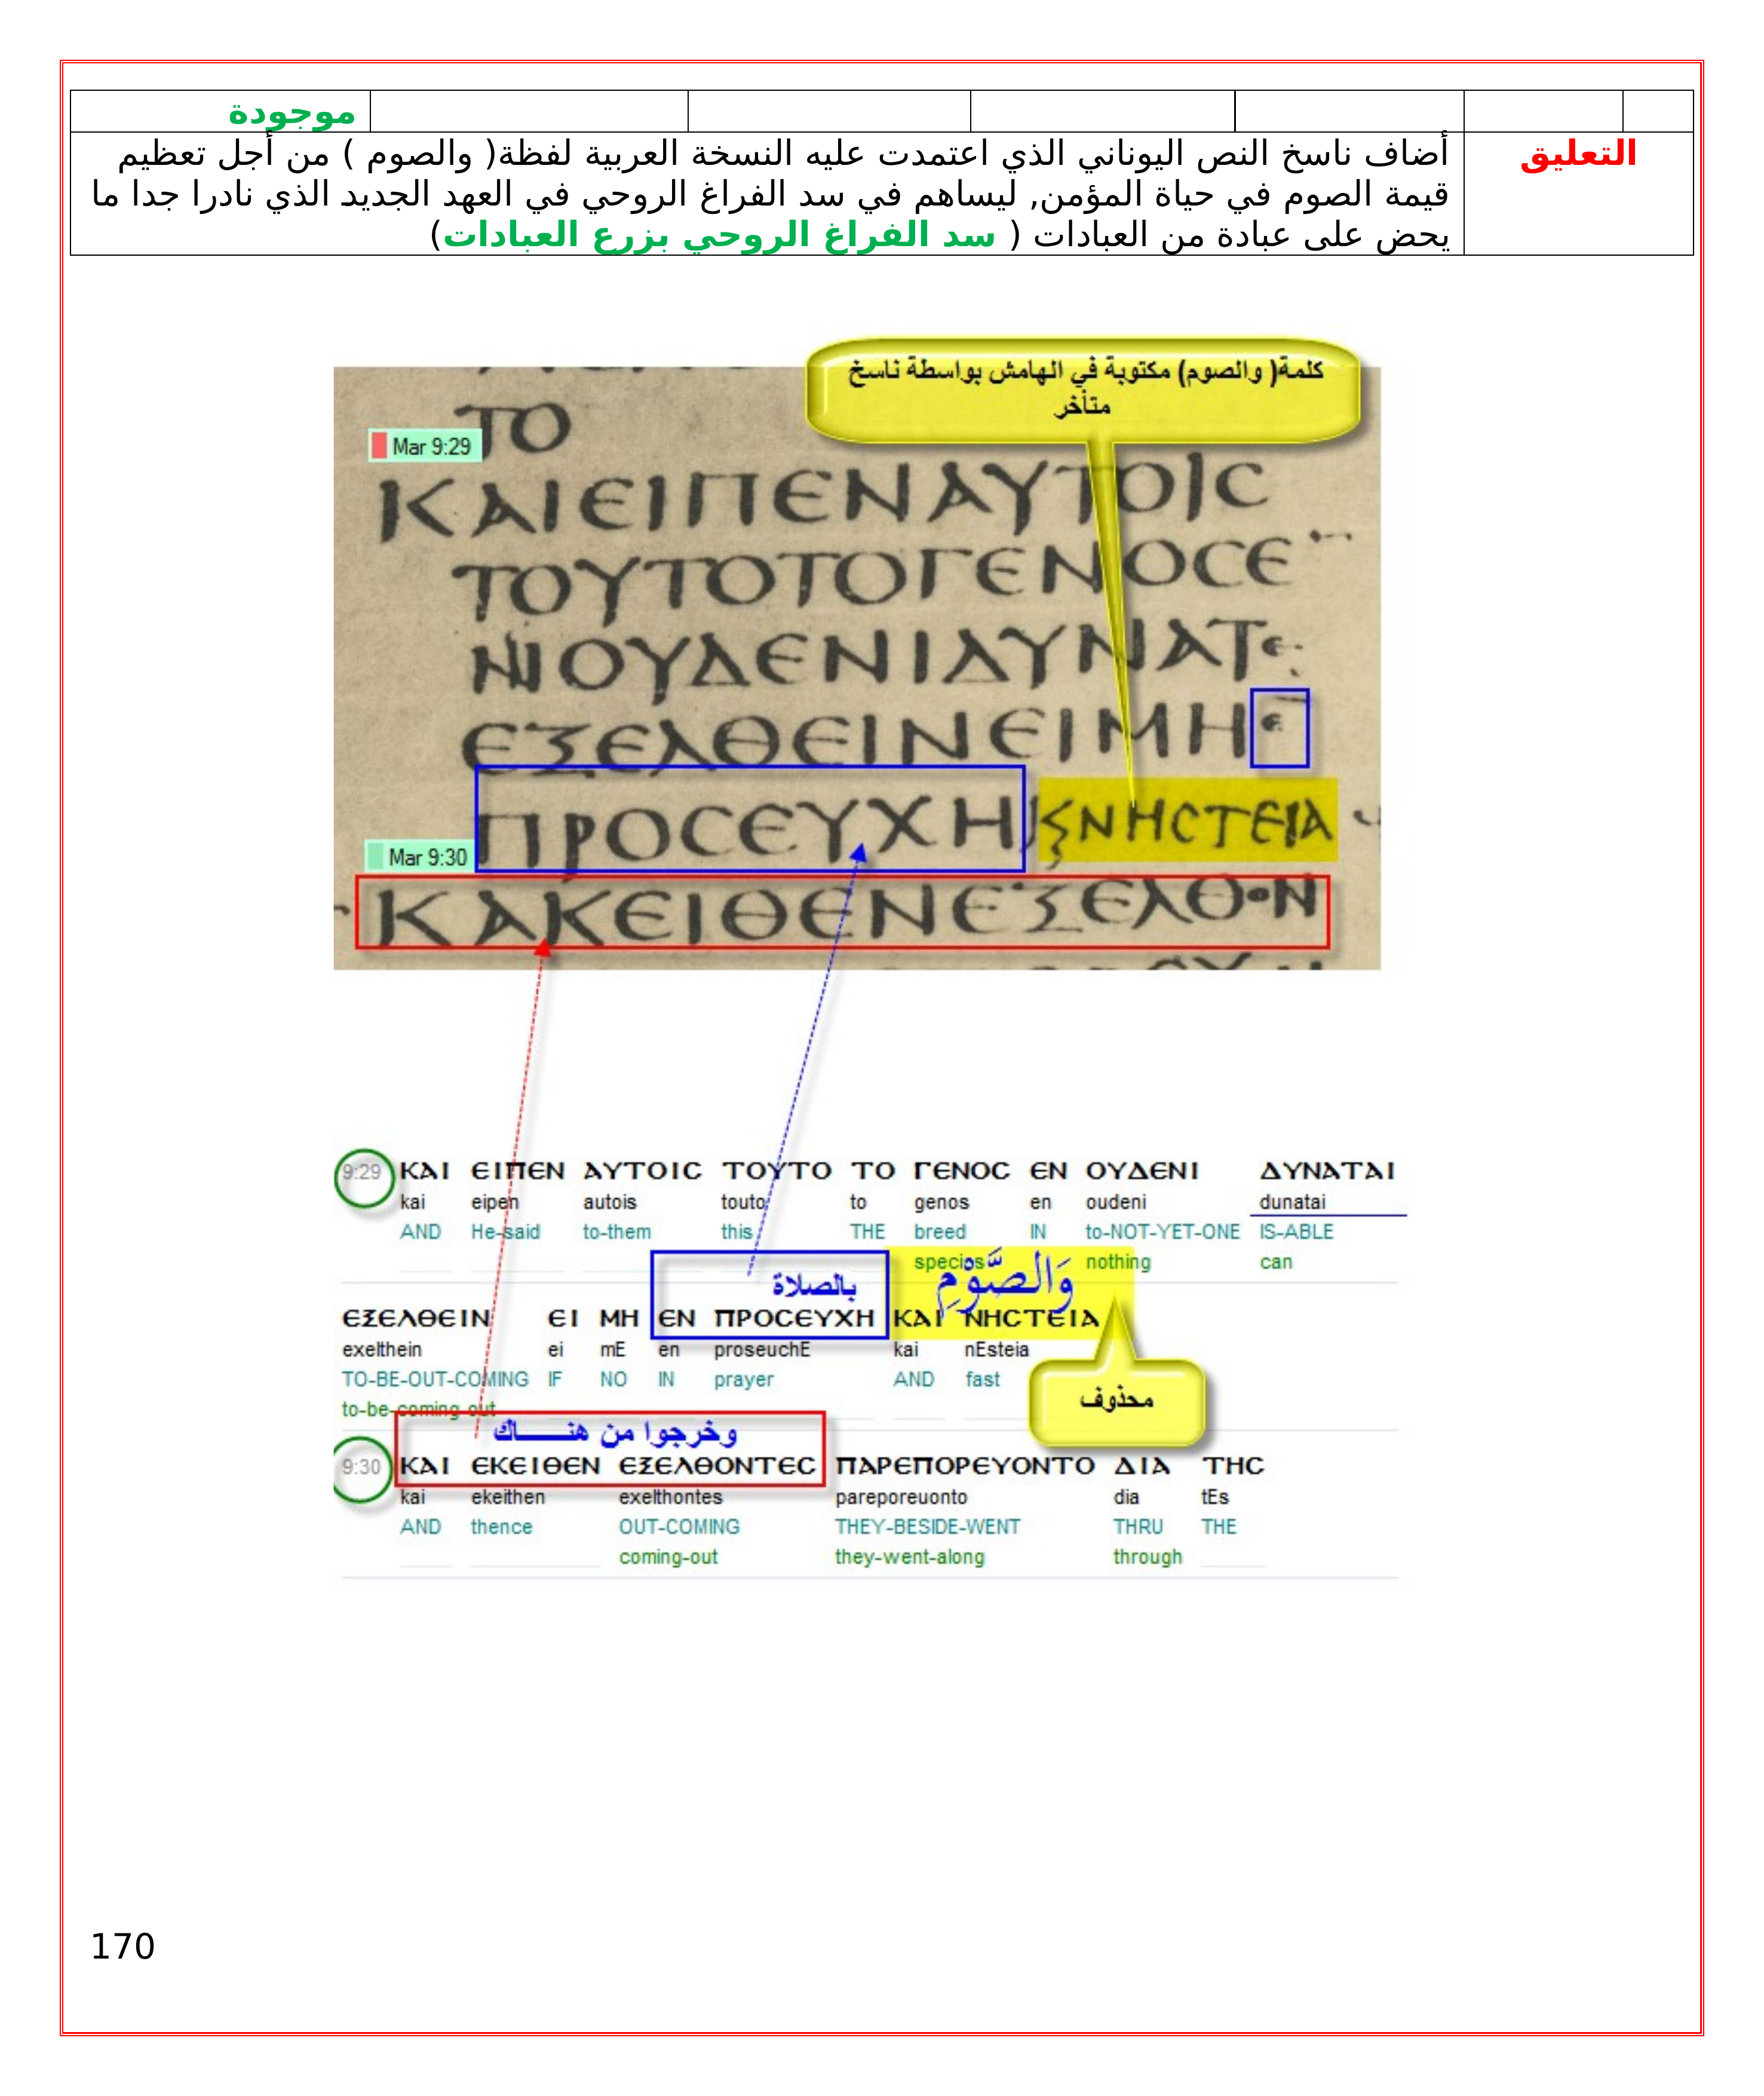 موجودة
التعليق
أضاف ناسخ النص اليوناني الذي اعتمدت عليه النسخة العربية لفظة( والصوم ) من أجل تعظيم
قيمة الصوم في حياة المؤمن, ليساهم في سد الفراغ الروحي في العهد الجديد الذي نادرا جدا ما
يحض على عبادة من العبادات ( سد الفراغ الروحي بزرع العبادات)
كلمة( والصوم) مكتوبة في الهامش بواسطة ناسخ
متأخر
ΤΟ
Mar 9:29
ΚΑΙΕΙΠΕΝΑΥΤΟΙϹ
ΤΟΥΤΟΤΟΓΕΝΟϹΕ
ΝΟΥΔΕΝΙΔΥΝΑΤΕ
ΕΞΕΛΘΕΙΝΕΙΜΗΕ
ΠΡΟϹΕΥΧΗ ϚΝΗϹΤΕΙΑ
Mar 9:30
ΚΑΚΕΙΘΕΝΕΞΕΛΘΟΝ
9:29 ΚΑΙ ΕΙΠΕΝ ΑΥΤΟΙϹ ΤΟΥΤΟ ΤΟ ΓΕΝΟϹ ΕΝ ΟΥΔΕΝΙ ΔΥΝΑΤΑΙ
kai eipen autois touto to genos en oudeni dunatai
AND He-said to-them this THE breed IN to-NOT-YET-ONE IS-ABLE
species nothing can
بالصلاة وَالصَّوْمِ
ΕΞΕΛΘΕΙΝ ΕΙ ΜΗ ΕΝ ΠΡΟϹΕΥΧΗ ΚΑΙ ΝΗϹΤΕΙΑ
exelthein ei mE en proseuchE kai nEsteia
TO-BE-OUT-COMING IF NO IN prayer AND fast
محذوف
to-be-coming-out
وخرجوا من هنـــــاك
9:30 ΚΑΙ ΕΚΕΙΘΕΝ ΕΞΕΛΘΟΝΤΕϹ ΠΑΡΕΠΟΡΕΥΟΝΤΟ ΔΙΑ ΤΗϹ
kai ekeithen exelthontes pareporeuonto dia tEs
AND thence OUT-COMING THEY-BESIDE-WENT THRU THE
coming-out they-went-along through
170